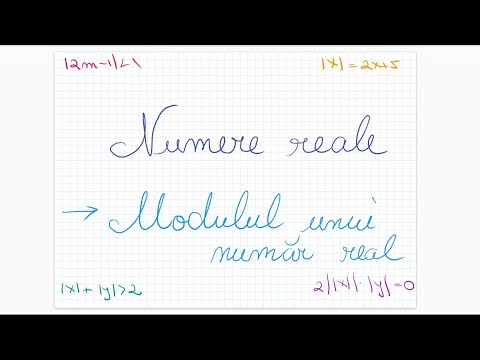 |2m-1|<1
|x|=2x+5
Numere reale
→ Modulul unui
număr real
|x|+|y|>2
2||x|·|y|=0